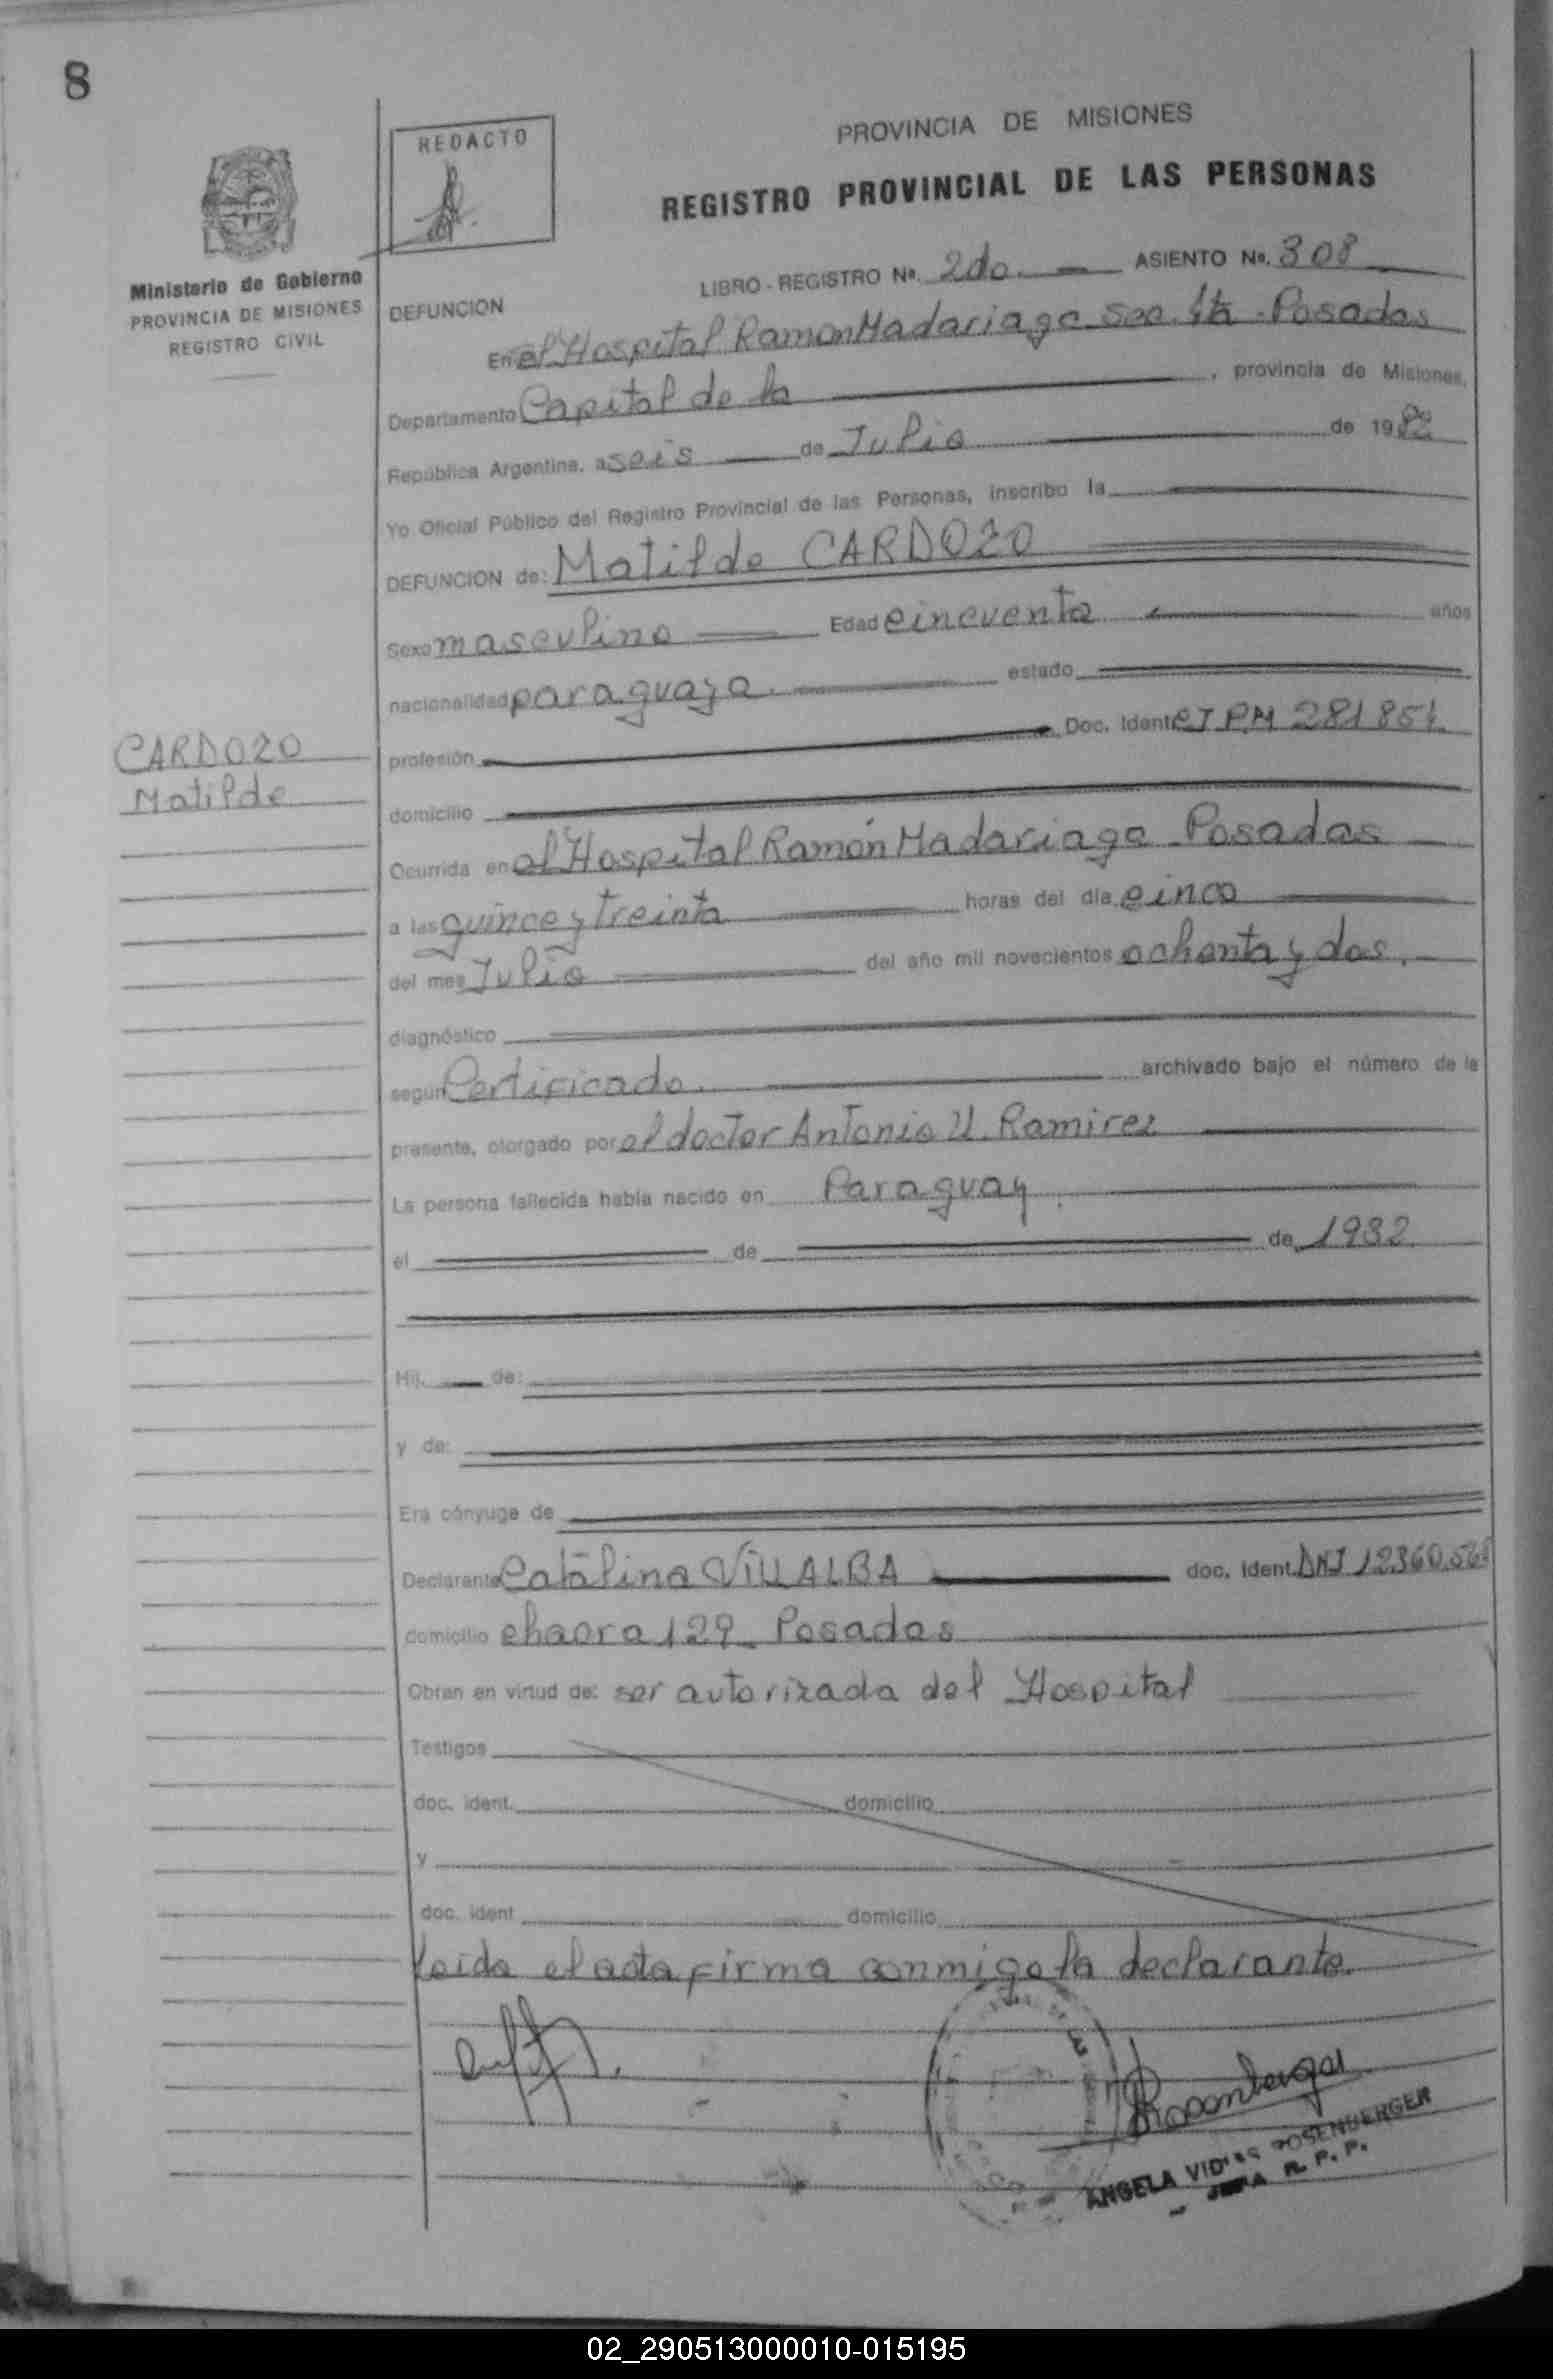 8
REDACTO
PROVINCIA DE MISIONES
REGISTRO PROVINCIAL DE LAS PERSONAS
Ministerio de Gobierno
PROVINCIA DE MISIONES
REGISTRO CIVIL
LIBRO - REGISTRO No. 2do. ASIENTO No. 308
DEFUNCION
En el Hospital Ramon Madariaga Sec. 1ta - Posadas
Departamento Capital de la , provincia de Misiones,
República Argentina, a seis de Julio de 1982
Yo Oficial Público del Registro Provincial de las Personas, inscribo la
DEFUNCION de: Matilde CARDOZO
Sexo masculino Edad cincuenta años
nacionalidad paraguaya. estado
CARDOZO
Matilde
profesión Doc. Ident. CIPM 281851.
domicilio
Ocurrida en el Hospital Ramón Madariaga Posadas
a las quince y treinta horas del día cinco
del mes Julio del año mil novecientos ochenta y dos.
diagnóstico
según Certificado. archivado bajo el número de la
presente, otorgado por el doctor Antonio U. Ramirez
La persona fallecida había nacido en Paraguay.
el de de 1932
Hij. de:
y de:
Era cónyuge de
Declarante Catalina VILLALBA doc. Ident. DNI 12360.56
domicilio chacra 129 - Posadas
Obran en virtud de: ser autorizada del Hospital
Testigos
doc. ident. domicilio
y
doc. ident domicilio
Leida el acta firma conmigo la declarante.
Rosemberger
ANGELA ROSENBERGER
JEFA R. P. P.
02_290513000010-015195